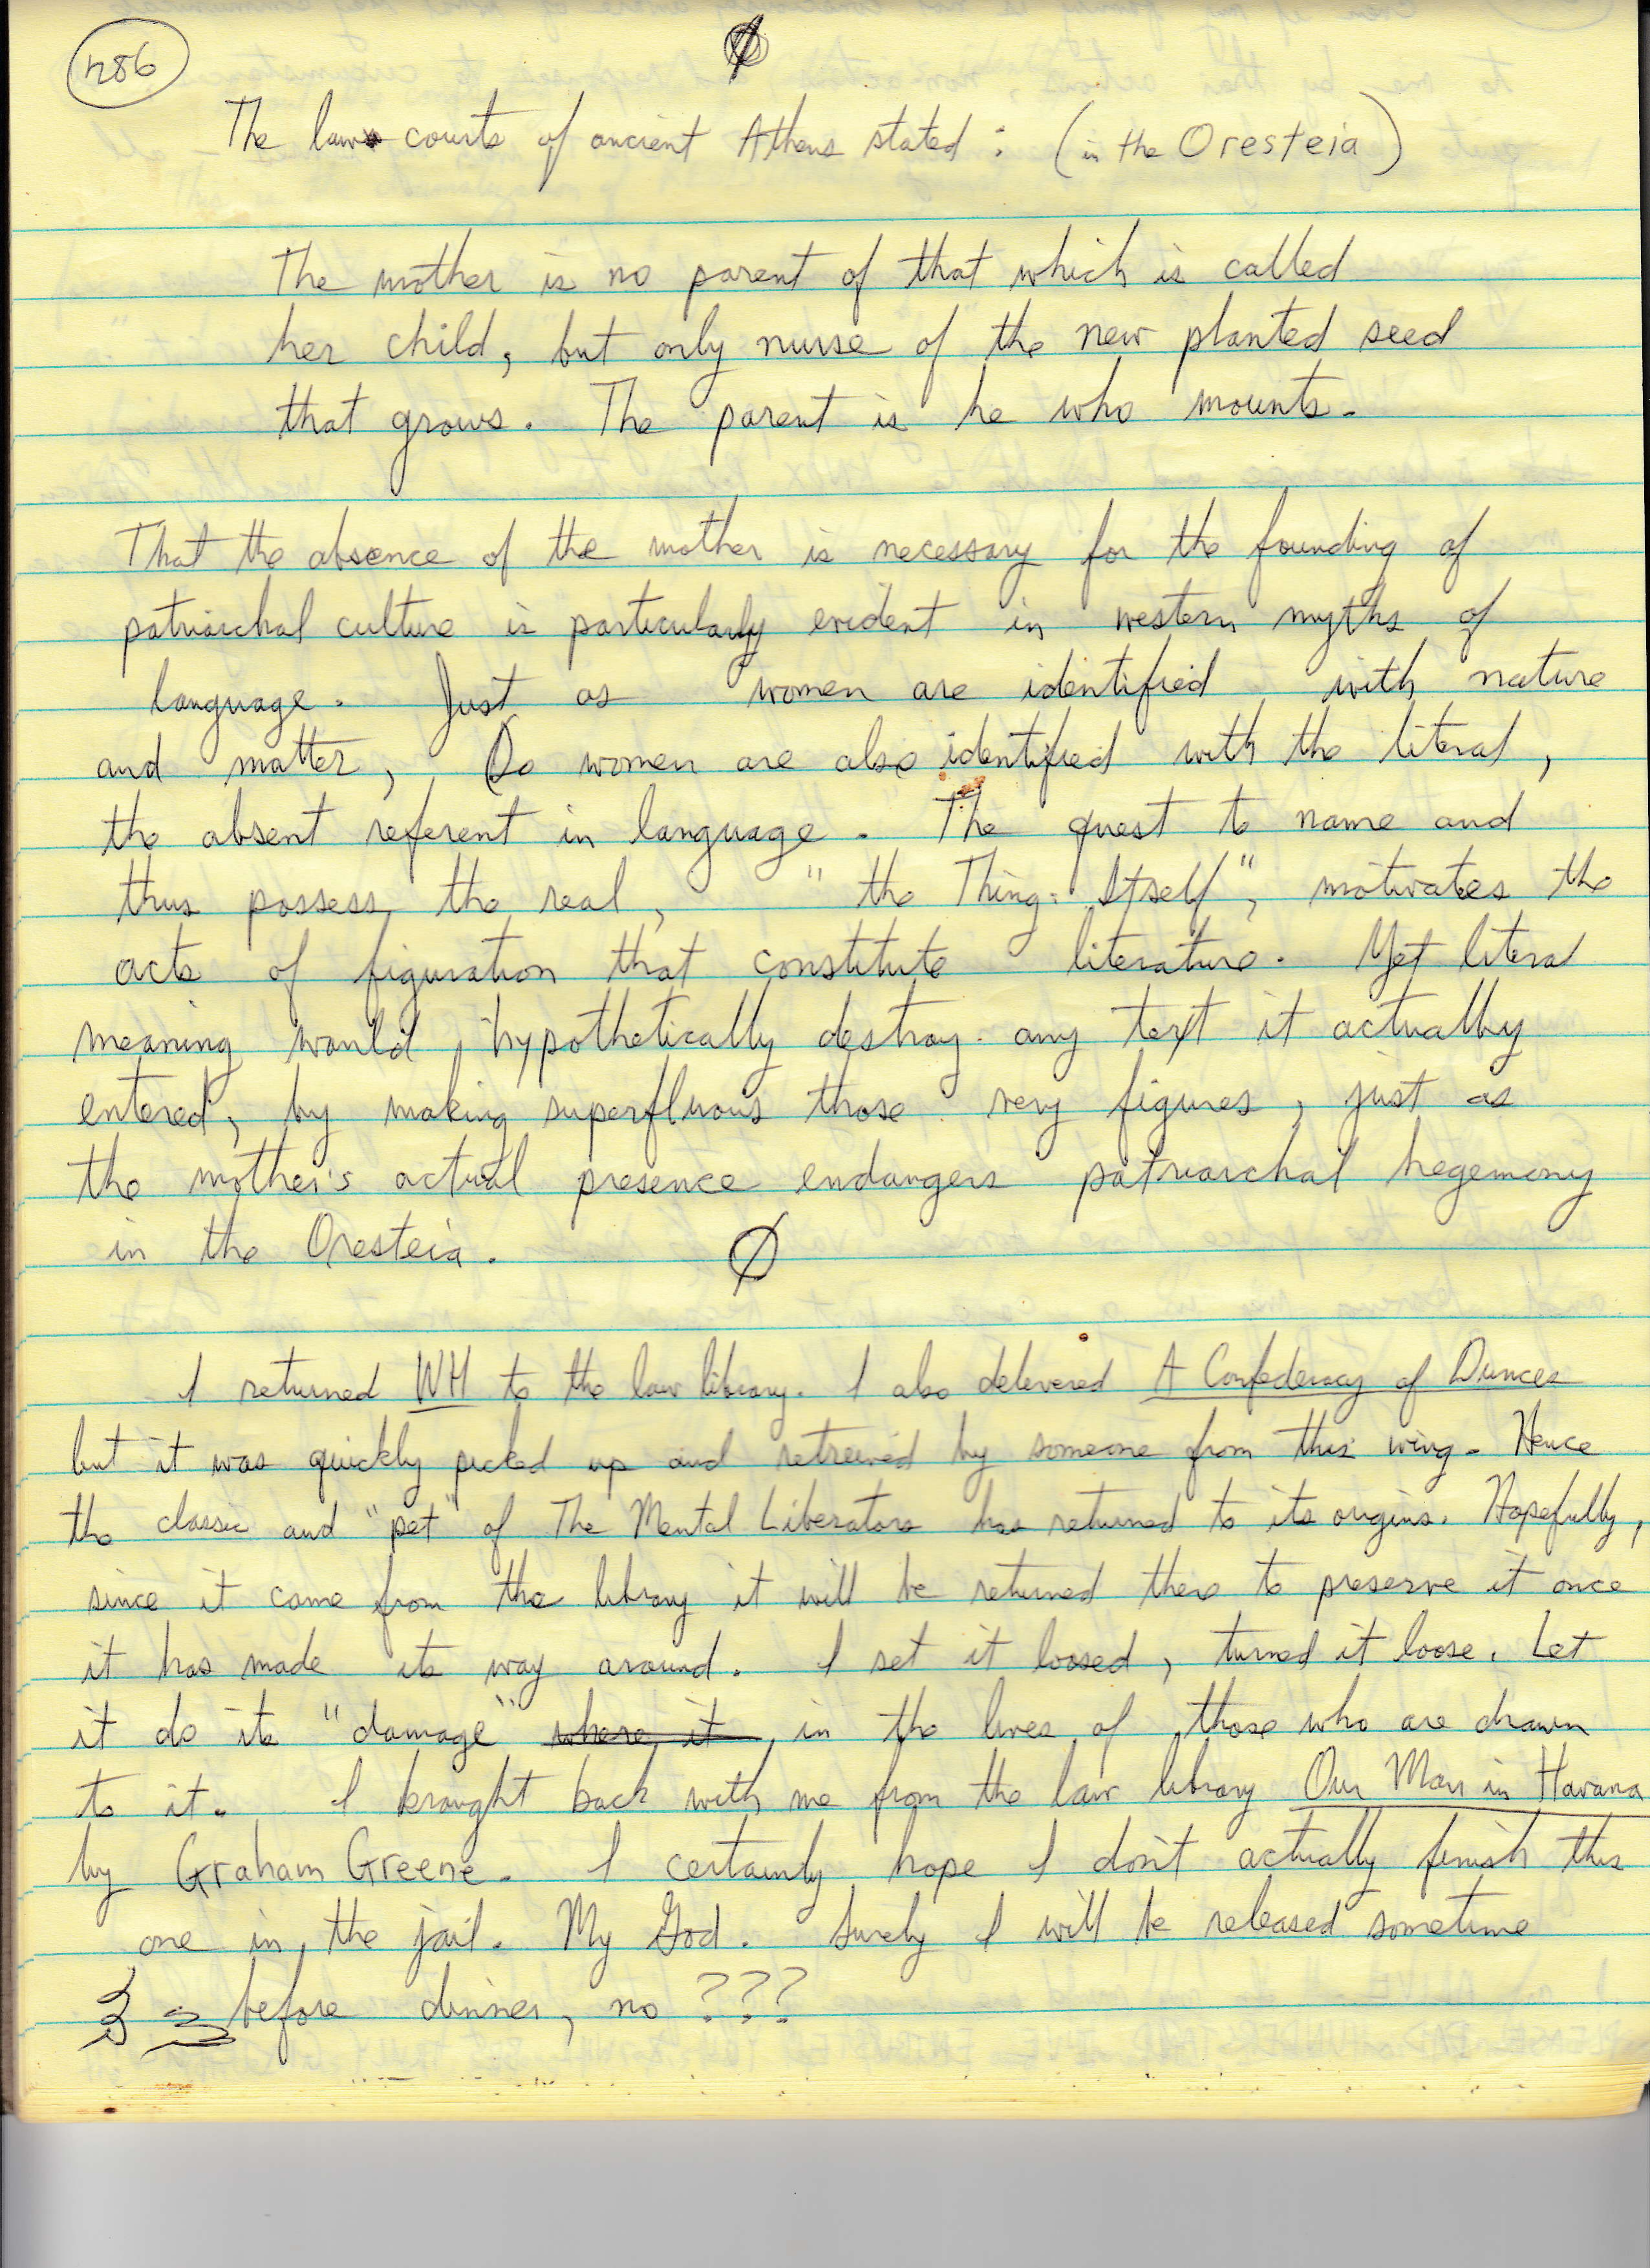 286
Ø
The law courts of ancient Athens stated: (in the Oresteia)
The mother is no parent of that which is called
her child, but only nurse of the new planted seed
that grows. The parent is he who mounts.
That the absence of the mother is necessary for the founding of
patriarchal culture is particularly evident in western myths of
language. Just as women are identified with nature
and matter, So women are also identified with the literal,
the absent referent in language. The quest to name and
thus possess the real, "the Thing-Itself", motivates the
acts of figuration that constitute literature. Yet literal
meaning would hypothetically destroy any text it actually
entered, by making superfluous those very figures, just as
the mother's actual presence endangers patriarchal hegemony
in the Oresteia.
Ø
I returned WH to the law library. I also delevered A Confederacy of Dunces
but it was quickly picked up and retreived by someone from this wing. Hence
the classic and "pet" of The Mental Liberators has returned to its origins. Hopefully,
since it came from the library it will be returned there to preserve it once
it has made its way around. I set it loosed, turned it loose. Let
it do its "damage" where it in the lives of those who are drawn
to it. I brought back with me from the law library Our Man in Havana
by Graham Greene. I certainly hope I don't actually finish this
one in the jail. My God. Surely I will be released sometime
before dinner, no ???